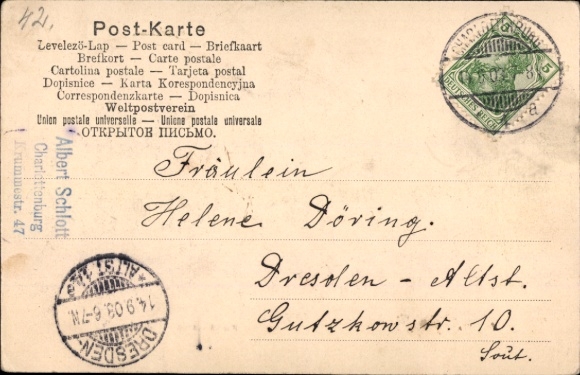 42.
Post-Karte
Levelező-Lap — Post card — Briefkaart
Brefkort — Carte postale
Cartolina postale — Tarjeta postal
Dopisnice — Karta Korespondencyjna
Correspondenzkarte — Dopisnica
Weltpostverein
Union postale universelle — Unione postale universale
ОТКРЫТОЕ ПИСЬМО.
5
DEUTSCHES REICH
Albert Schlott
Charlottenburg
Krummestr. 47
Fräulein
Helene Döring.
Dresden - Altst.
Gutzkowstr. 10.
Sout.
DRESDEN-
ALTST.
14.9.03.6-7N.